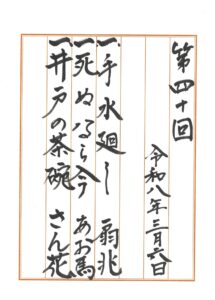 第四十回
令和八年三月六日
一、手水廻し 扇兆
一、死ぬなら今 あお馬
一、井戸の茶碗 さん花